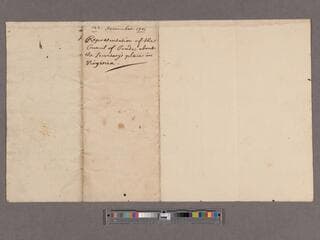 November 1701
Representation of the
Council of Trade, about
the Secretary's place in
Virginia.